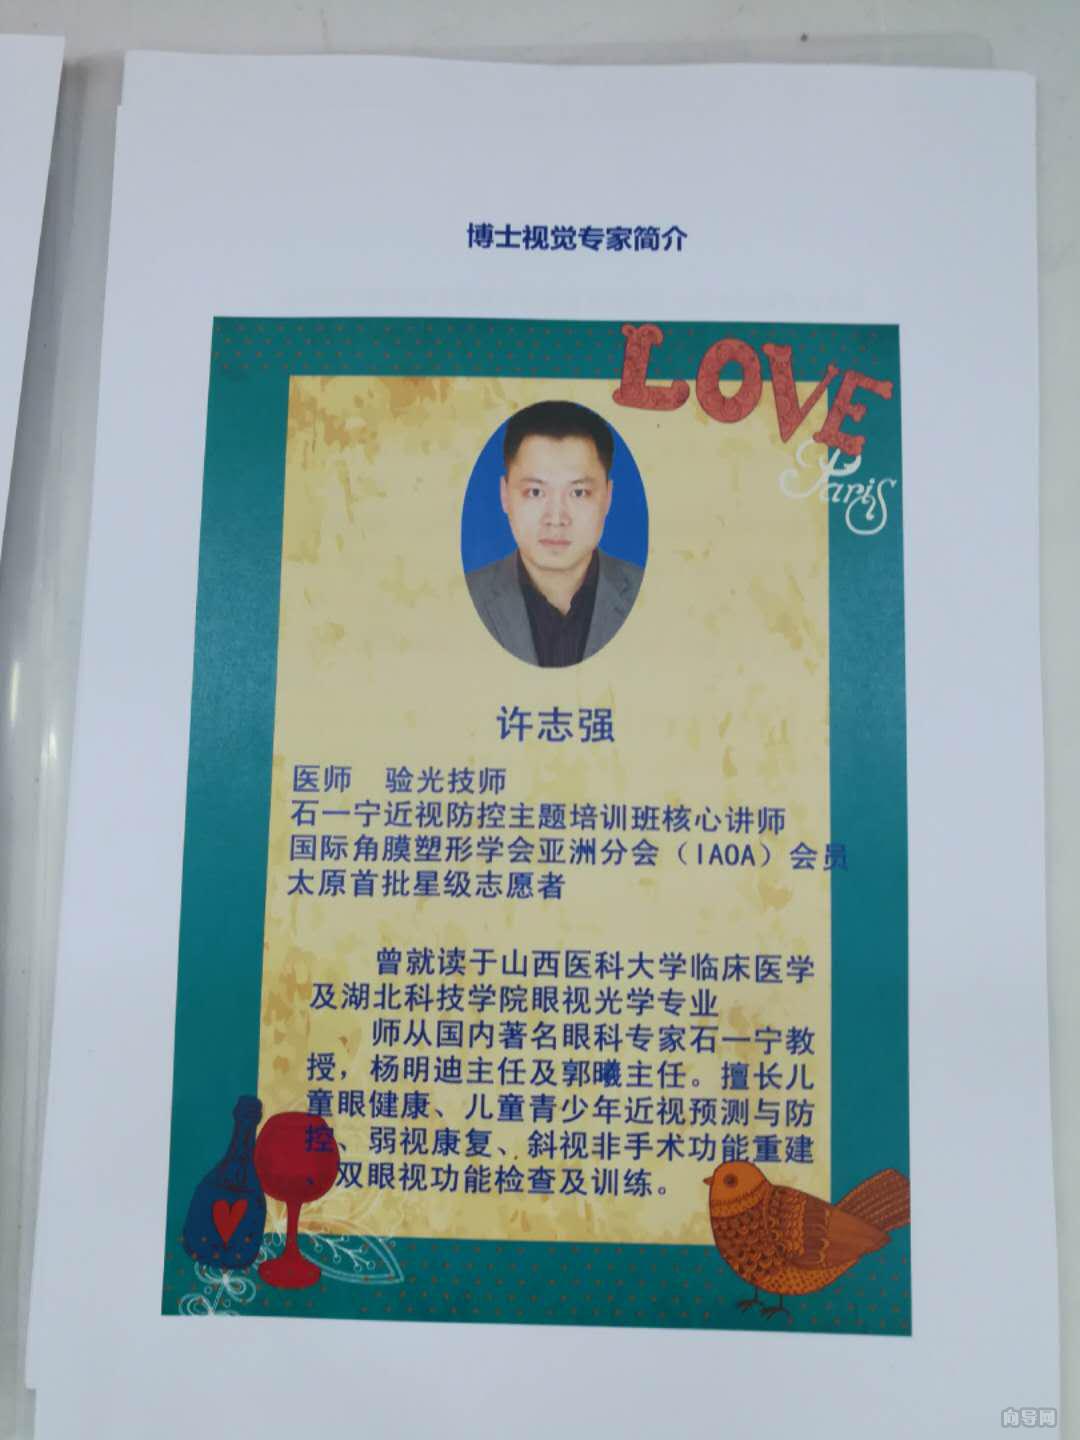 博士视觉专家简介
LOVE
Paris
许志强
医师 验光技师
石一宁近视防控主题培训班核心讲师
国际角膜塑形学会亚洲分会（IAOA）会员
太原首批星级志愿者
曾就读于山西医科大学临床医学
及湖北科技学院眼视光学专业
师从国内著名眼科专家石一宁教
授，杨明迪主任及郭曦主任。擅长儿
童眼健康、儿童青少年近视预测与防
控、弱视康复、斜视非手术功能重建
、双眼视功能检查及训练。
向导网